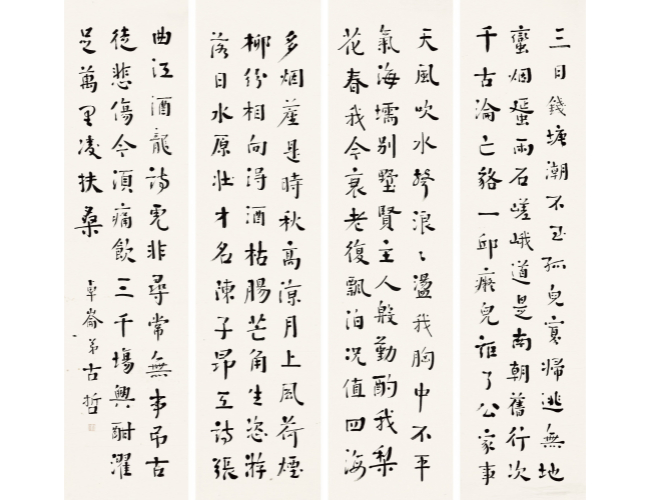 三日錢塘潮不至孤兒寡婦逃無地
蠻烟蜑雨石嵯峨道是南朝舊行次
千古淪亡貉一邱癡兒誑了公家事
天風吹水聲浪浪盪我胸中不平
氣海壖別墅賢主人殷勤酌我梨
花春我今衰老復飄泊况值四海
多烟產是時秋高涼月上風荷煙
柳紛相向得酒枯腸芒角生恣游
落日水原壯才名陳子昂工詩張
曲江酒龍詩虎非尋常無事吊古
徒悲傷今須痛飲三千場興酣濯
足萬里凌扶桑
卓崙弟 古哲